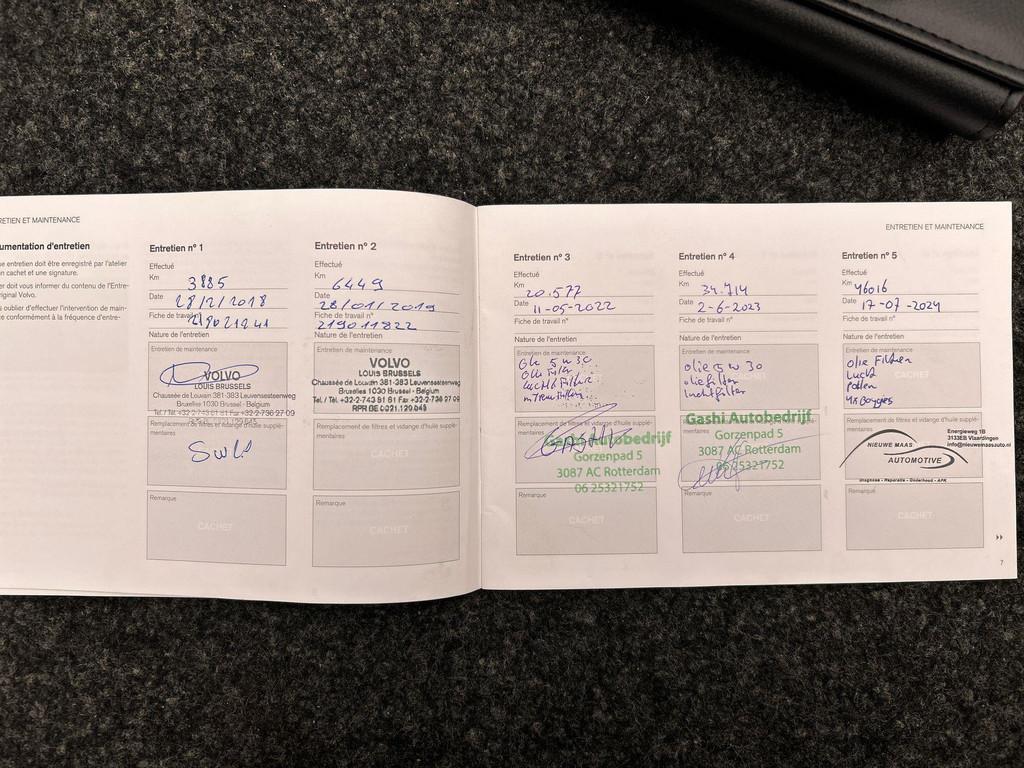 RETIEN ET MAINTENANCE
umentation d'entretien
ue entretien doit être enregistré par l'atelier
n cachet et une signature.
er doit vous informer du contenu de l'Entre-
riginal Volvo.
s oublier d'effectuer l'intervention de main-
e conformément à la fréquence d'entre-
Entretien n° 1
Effectué
Km
3885
Date 28/2/2018
Fiche de travail n°
Nature de l'entretien
Entretien de maintenance
VOLVO
LOUIS BRUSSELS
Chaussée de Louvain 381-383 Leuvensesteenweg
Bruxelles 1030 Brussel - Belgium
Tel. / Tél. +32-2-743 61 61 Fax +32-2-736 27 09
Remplacement de filtres et vidange d'huile supplé-
mentaires
Remarque
CACHET
Entretien n° 2
Effectué
Km
6449
Date
28/01/2019
Fiche de travail n°
219011822
Nature de l'entretien
Entretien de maintenance
VOLVO
LOUIS BRUSSELS
Chaussée de Louvain 381-383 Leuvensesteenweg
Bruxelles 1030 Brussel - Belgium
Tel. / Tél. +32-2-743 61 61 Fax +32-2-736 27 09
Remplacement de filtres et vidange d'huile supplé-
mentaires
CACHET
Remarque
CACHET
ENTRETIEN ET MAINTENANCE
Entretien n° 3
Effectué
Km
20.577
Date 11-05-2022
Fiche de travail n°
Nature de l'entretien
Entretien de maintenance
5w30
Remplacement de filtres et vidange d'huile supplé-
mentaires
Gashi Autobedrijf
Gorzenpad 5
3087 AC Rotterdam
06 25321752
Remarque
CACHET
Entretien n° 4
Effectué
Km
34.714
Date 2-6-2023
Fiche de travail n°
Nature de l'entretien
Entretien de maintenance
olie 5w30
oliefilter
luchtfilter
Gashi Autobedrijf
Gorzenpad 5
3087 AC Rotterdam
06 25321752
Remarque
CACHET
Entretien n° 5
Effectué
Km
46016
Date 17-07-2024
Fiche de travail n°
Nature de l'entretien
Entretien de maintenance
olie Filter
Lucht
pollen
CACHET
Remplacement de filtres et vidange d'huile supplé-
mentaires
Energieweg 1B
3133EB Vlaardingen
info@nieuwemaasauto.nl
NIEUWE MAAS
AUTOMOTIVE
Diagnose - Reparatie - Onderhoud - APK
Remarque
CACHET
7